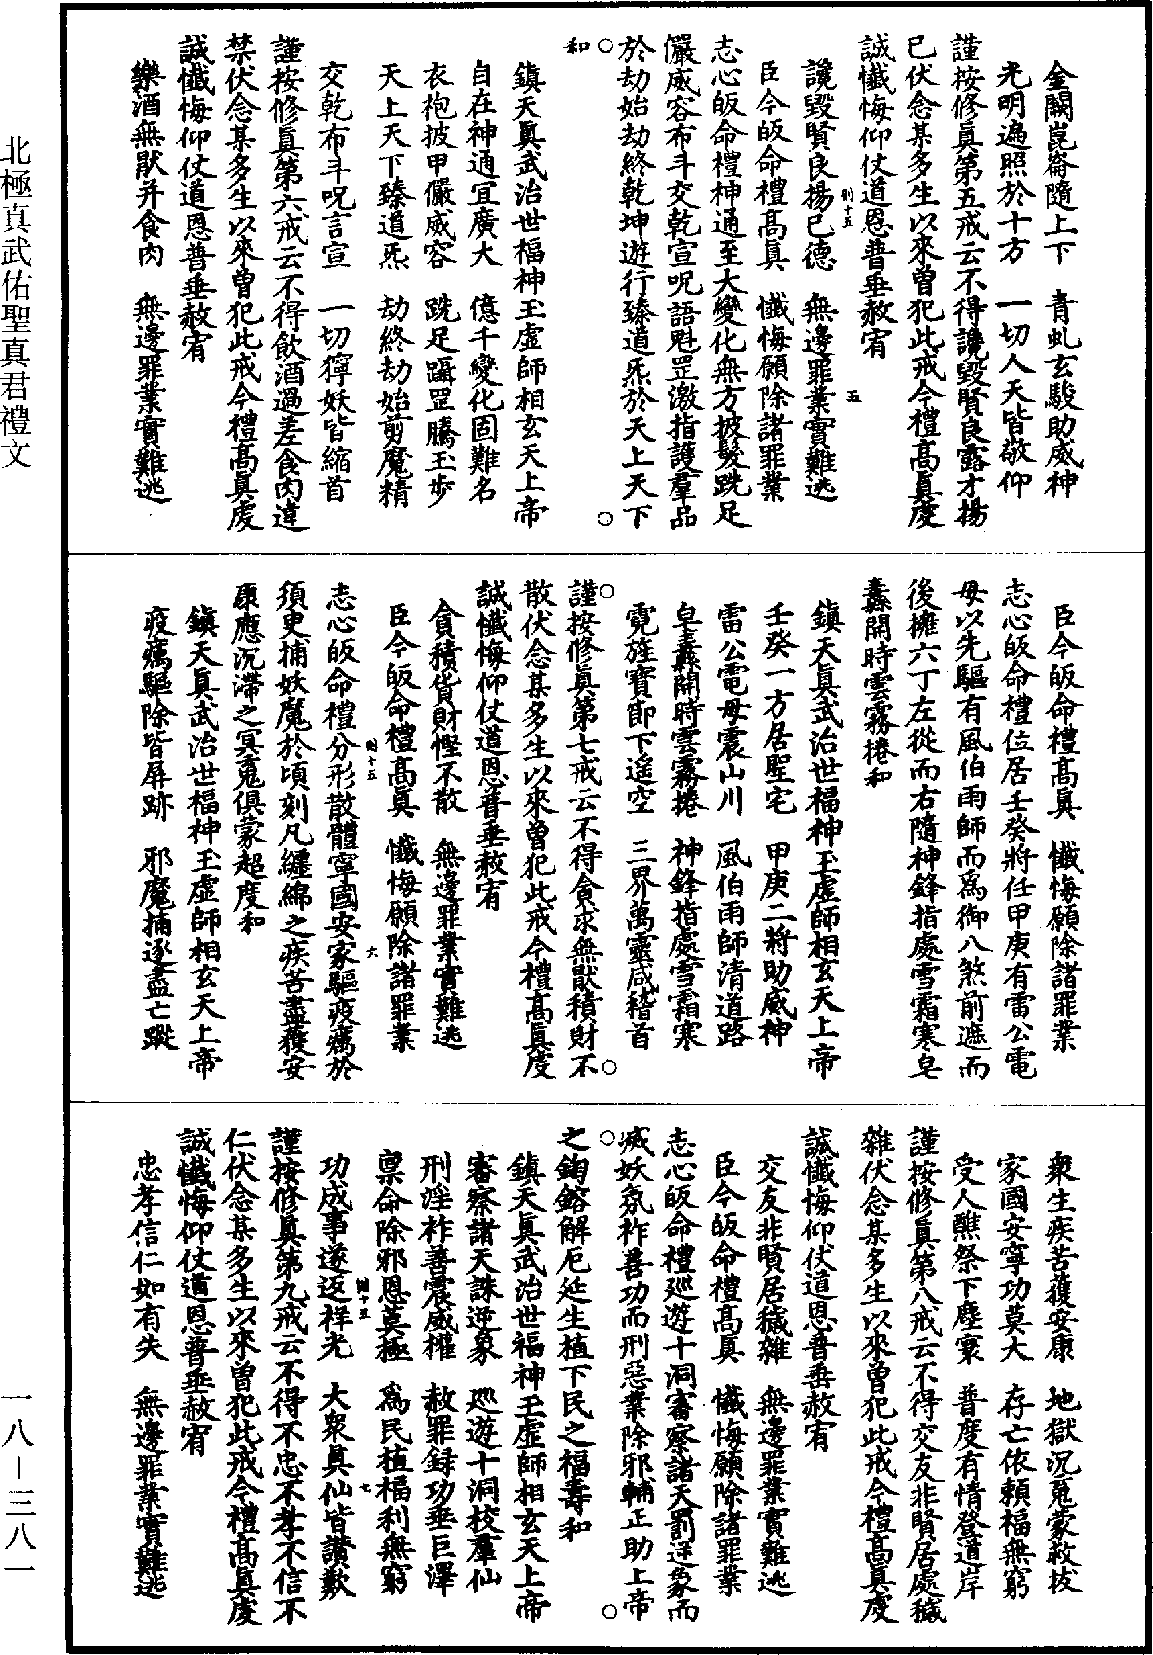 金闕崑崙隨上下　青虬玄駿助威神
光明遍照於十方　一切人天皆敬仰
謹按修真第五戒云不得讒毀賢良露才揚
己伏念某多生以來曾犯此戒今禮高真虔
誠懺悔仰仗道恩普垂赦宥
讒毀賢良揚己德　無邊罪業實難逃
臣今皈命禮高真　懺悔願除諸罪業
志心皈命禮神通至大變化無方披髮跣足
儼威容布斗交乾宣呪語魁罡激指護羣品
於劫始劫終乾坤遊行臻道炁於天上天下
和
鎮天真武治世福神玉虛師相玄天上帝
自在神通宜廣大　億千變化固難名
衣袍披甲儼威容　跣足躡罡騰玉步
天上天下臻道炁　劫終劫始剪魔精
交乾布斗呪言宣　一切獰妖皆縮首
謹按修真第六戒云不得飲酒過差食肉違
禁伏念某多生以來曾犯此戒今禮高真虔
誠懺悔仰仗道恩普垂赦宥
樂酒無猒并食肉　無邊罪業實難逃
臣今皈命禮高真　懺悔願除諸罪業
志心皈命禮位居壬癸將任甲庚有雷公電
母以先驅有風伯雨師而為御八煞前遮而
後擁六丁左從而右隨神鋒指處雪霜寒皂
纛開時雲霧捲和
鎮天真武治世福神玉虛師相玄天上帝
壬癸一方居聖宅　甲庚二將助威神
雷公電母震山川　風伯雨師清道路
皂纛開時雲霧捲　神鋒指處雪霜寒
霓旌寶節下遙空　三界萬靈咸稽首
謹按修真第七戒云不得貪求無猒積財不
散伏念某多生以來曾犯此戒今禮高真虔
誠懺悔仰仗道恩普垂赦宥
貪積貨財慳不散　無邊罪業實難逃
臣今皈命禮高真　懺悔願除諸罪業
志心皈命禮分形散體寧國安家驅疫癘於
須臾捕妖魔於頃刻凡纏綿之疾苦盡獲安
康應沉滯之冥䰟俱蒙超度和
鎮天真武治世福神玉虛師相玄天上帝
疫癘驅除皆屏跡　邪魔捕逐盡亡蹤
衆生疾苦獲安康　地獄沉䰟蒙救拔
家國安寧功莫大　存亡依賴福無窮
受人醮祭下塵寰　普度有情登道岸
謹按修真第八戒云不得交友非賢居處穢
雜伏念某多生以來曾犯此戒今禮高真虔
誠懺悔仰仗道恩普垂赦宥
交友非賢居穢雜　無邊罪業實難逃
臣今皈命禮高真　懺悔願除諸罪業
志心皈命禮廵遊十洞審察諸天罰逆象而
滅妖氛祚善功而刑惡業除邪輔正助上帝
之鈞鎔解厄延生植下民之福壽和
鎮天真武治世福神玉虛師相玄天上帝
審察諸天誅逆象　廵遊十洞校羣仙
刑淫祚善震威權　赦罪録功垂巨澤
稟命除邪恩莫極　為民植福利無窮
功成事遂返祥光　大衆真仙皆讚歎
謹按修真第九戒云不得不忠不孝不信不
仁伏念某多生以來曾犯此戒今禮高真虔
誠懺悔仰仗道恩普垂赦宥
忠孝信仁如有失　無邊罪業實難逃
北極真武佑聖真君禮文
一八—三八一